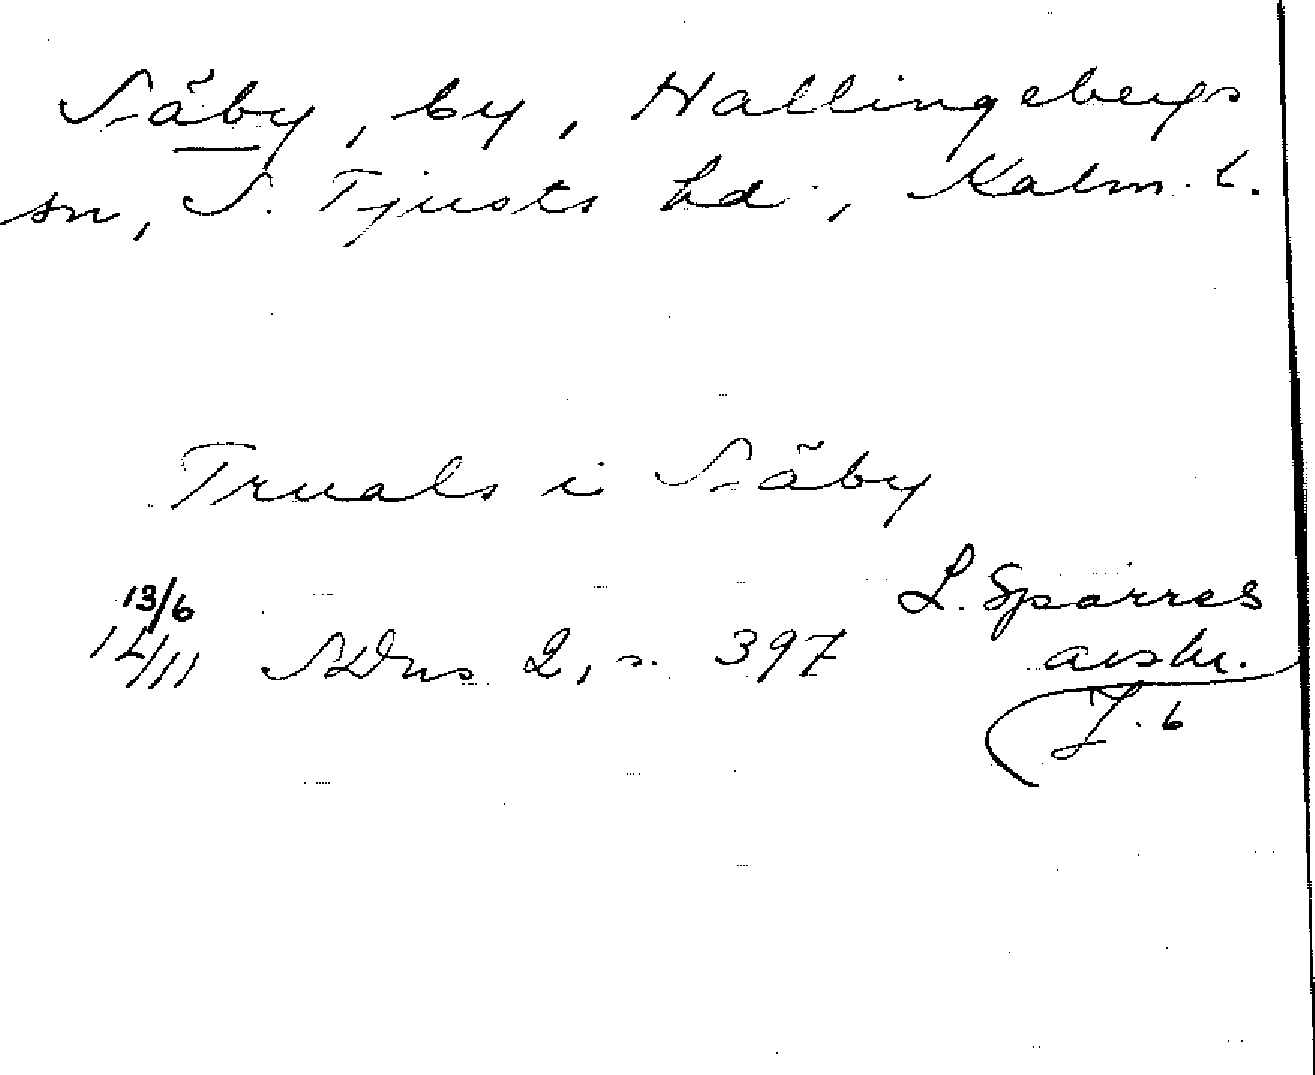 Näby, by, Hallingebergs
sn, S. Tjusts hd., Kalm. l.
Truals i Näby
13/6
12/11 SRDns 2, s. 397
L. Sparres
avskr.
J. 6